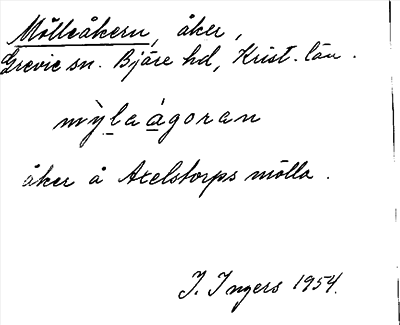 Mölleåkern, åker,
Grevie sn. Bjäre hd, Krist. län.
mỳlaágoran
åker å Axelstorps mölla.
I. Ingers 1954.